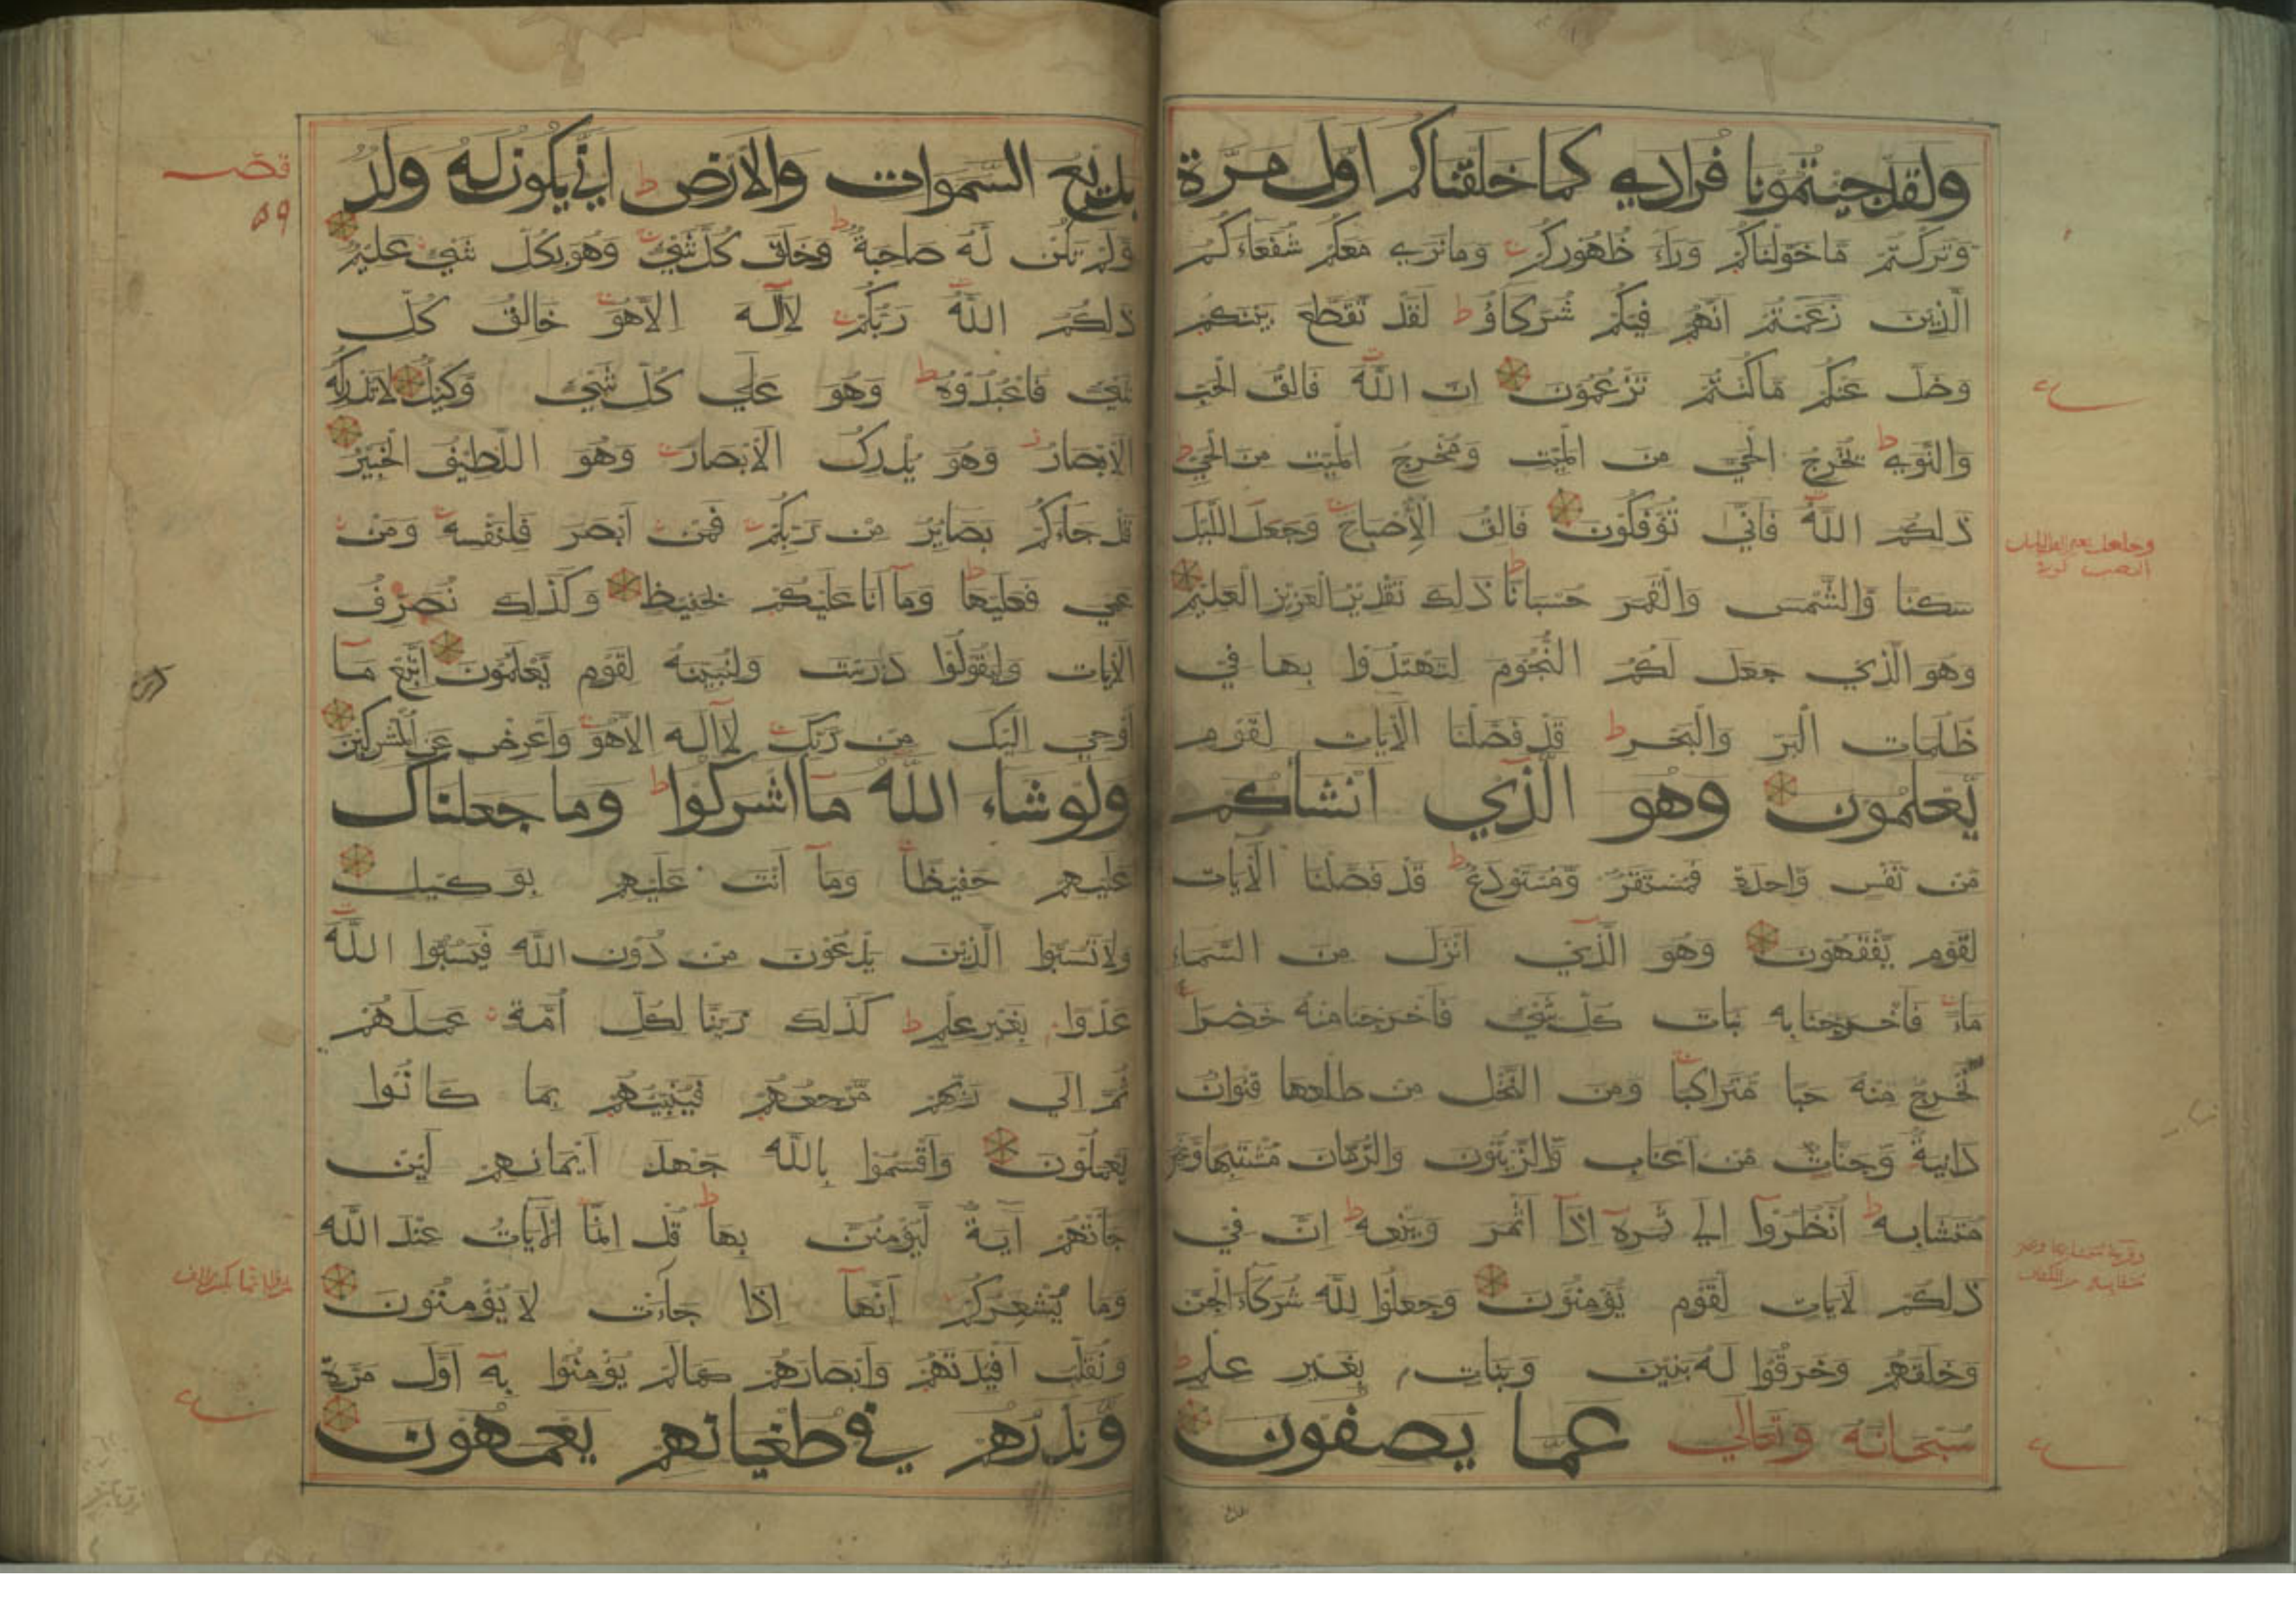 ولقد جيتمونا فرادي كما خلقناكم اول مرة
وتركتم ما خولناكم وراء ظهوركم وما نري معكم شفعاءكم
الذين زعمتم انهم فيكم شركاؤ لقد تقطع بينكم
وضل عنكم ما كنتم تزعمون ان الله فالق الحب
والنوي يخرج الحي من الميت ومخرج الميت من الحي
ذلكم الله فاني تؤفكون فالق الإصباح وجعل الليل
سكنا والشمس والقمر حسبانا ذلك تقدير العزيز العليم
وهو الذي جعل لكم النجوم لتهتدوا بها في
ظلمات البر والبحر قد فصلنا الآيات لقوم
يعلمون وهو الذي انشاكم
من نفس واحدة فمستقر ومستودع قد فصلنا الآيات
لقوم يفقهون وهو الذي انزل من السماء
ماء فاخرجنا به نبات كل شي فاخرجنا منه خضرا
نخرج منه حبا متراكبا ومن النخل من طلعها قنوان
دانية وجنات من اعناب والزيتون والرمان مشتبها وغير
متشابه انظروا الي ثمره اذا اثمر وينعه ان في
ذلكم لآيات لقوم يؤمنون وجعلوا لله شركاء الجن
وخلقهم وخرقوا له بنين وبنات بغير علم
سبحانه وتعالي عما يصفون
بديع السموات والارض اني يكون له ولد
ولم تكن له صاحبة وخلق كل شي وهو بكل شي عليم
ذلكم الله ربكم لا اله الا هو خالق كل
شي فاعبدوه وهو علي كل شي وكيل لا تدركه
الابصار وهو يدرك الابصار وهو اللطيف الخبير
قد جاءكم بصاير من ربكم فمن ابصر فلنفسه ومن
عمي فعليها وما انا عليكم بحفيظ وكذلك نصرف
الآيات وليقولوا درست ولنبينه لقوم يعلمون اتبع ما
اوحي اليك من ربك لا اله الا هو واعرض عن المشركين
ولو شاء الله ما اشركوا وما جعلناك
عليهم حفيظا وما انت عليهم بوكيل
ولا تسبوا الذين يدعون من دون الله فيسبوا الله
عدوا بغير علم كذلك زينا لكل امة عملهم
ثم الي ربهم مرجعهم فينبيهم بما كانوا
يعملون واقسموا بالله جهد ايمانهم لين
جاتهم آية ليؤمنن بها قل انما الآيات عند الله
وما يشعركم انها اذا جاءت لا يؤمنون
ونقلب افيدتهم وابصارهم كما لم يؤمنوا به اول مرة
ونذرهم في طغيانهم يعمهون